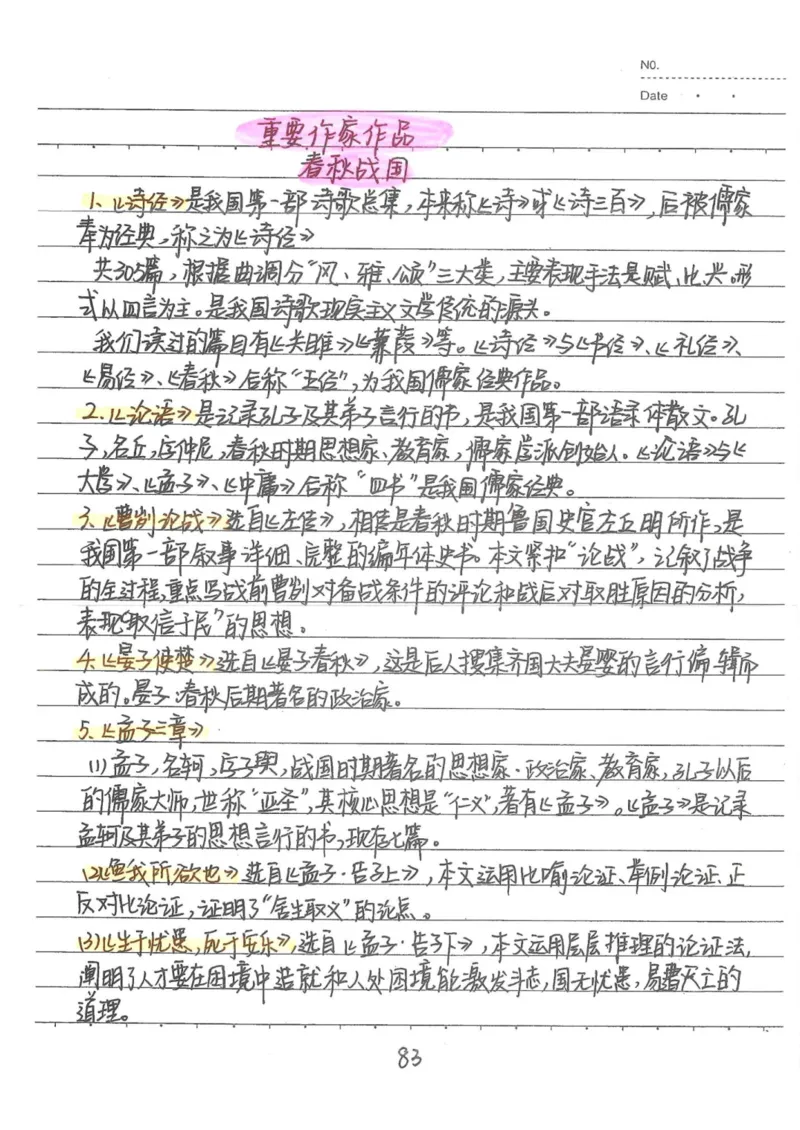 NO.
Date
重要作家作品
春秋战国
1、《诗经》是我国第一部诗歌总集，本来称《诗》或《诗三百》，后被儒家
奉为经典，称之为《诗经》
共305篇，根据曲调分“风、雅、颂”三大类，主要表现手法是赋、比、兴.形
式以四言为主。是我国诗歌现实主义文学传统的源头。
我们读过的篇目有《关雎》《蒹葭》等。《诗经》与《书经》、《礼经》、
《易经》、《春秋》合称“五经”，为我国儒家经典作品。
2、《论语》是记录孔子及其弟子言行的书，是我国第一部语录体散文。孔
子，名丘，字仲尼，春秋时期思想家、教育家，儒家学派创始人。《论语》与《
大学》、《孟子》、《中庸》合称“四书”是我国儒家经典。
3、《曹刿论战》选自《左传》，相传是春秋时期鲁国史官左丘明所作，是
我国第一部叙事详细、完整的编年体史书。本文紧扣“论战”，记叙了战争
的全过程，重点写战前曹刿对备战条件的评论和战后对取胜原因的分析，
表现“取信于民”的思想。
4、《晏子使楚》选自《晏子春秋》，这是后人搜集齐国大夫晏婴的言行编辑而
成的。晏子：春秋后期著名的政治家。
5、《孟子三章》
(1)孟子，名轲，字子舆，战国时期著名的思想家、政治家、教育家，孔子以后
的儒家大师，世称“亚圣”，其核心思想是“仁义”，著有《孟子》。《孟子》是记录
孟轲及其弟子的思想言行的书，现存七篇。
(2)《鱼我所欲也》选自《孟子·告子上》，本文运用比喻论证、举例论证、正
反对比论证，证明了“舍生取义”的论点。
(3)《生于忧患，死于安乐》，选自《孟子·告子下》，本文运用层层推理的论证法，
阐明了人才要在困境中造就和人处困境能激发斗志，国无忧患，易遭灭亡的
道理。
83